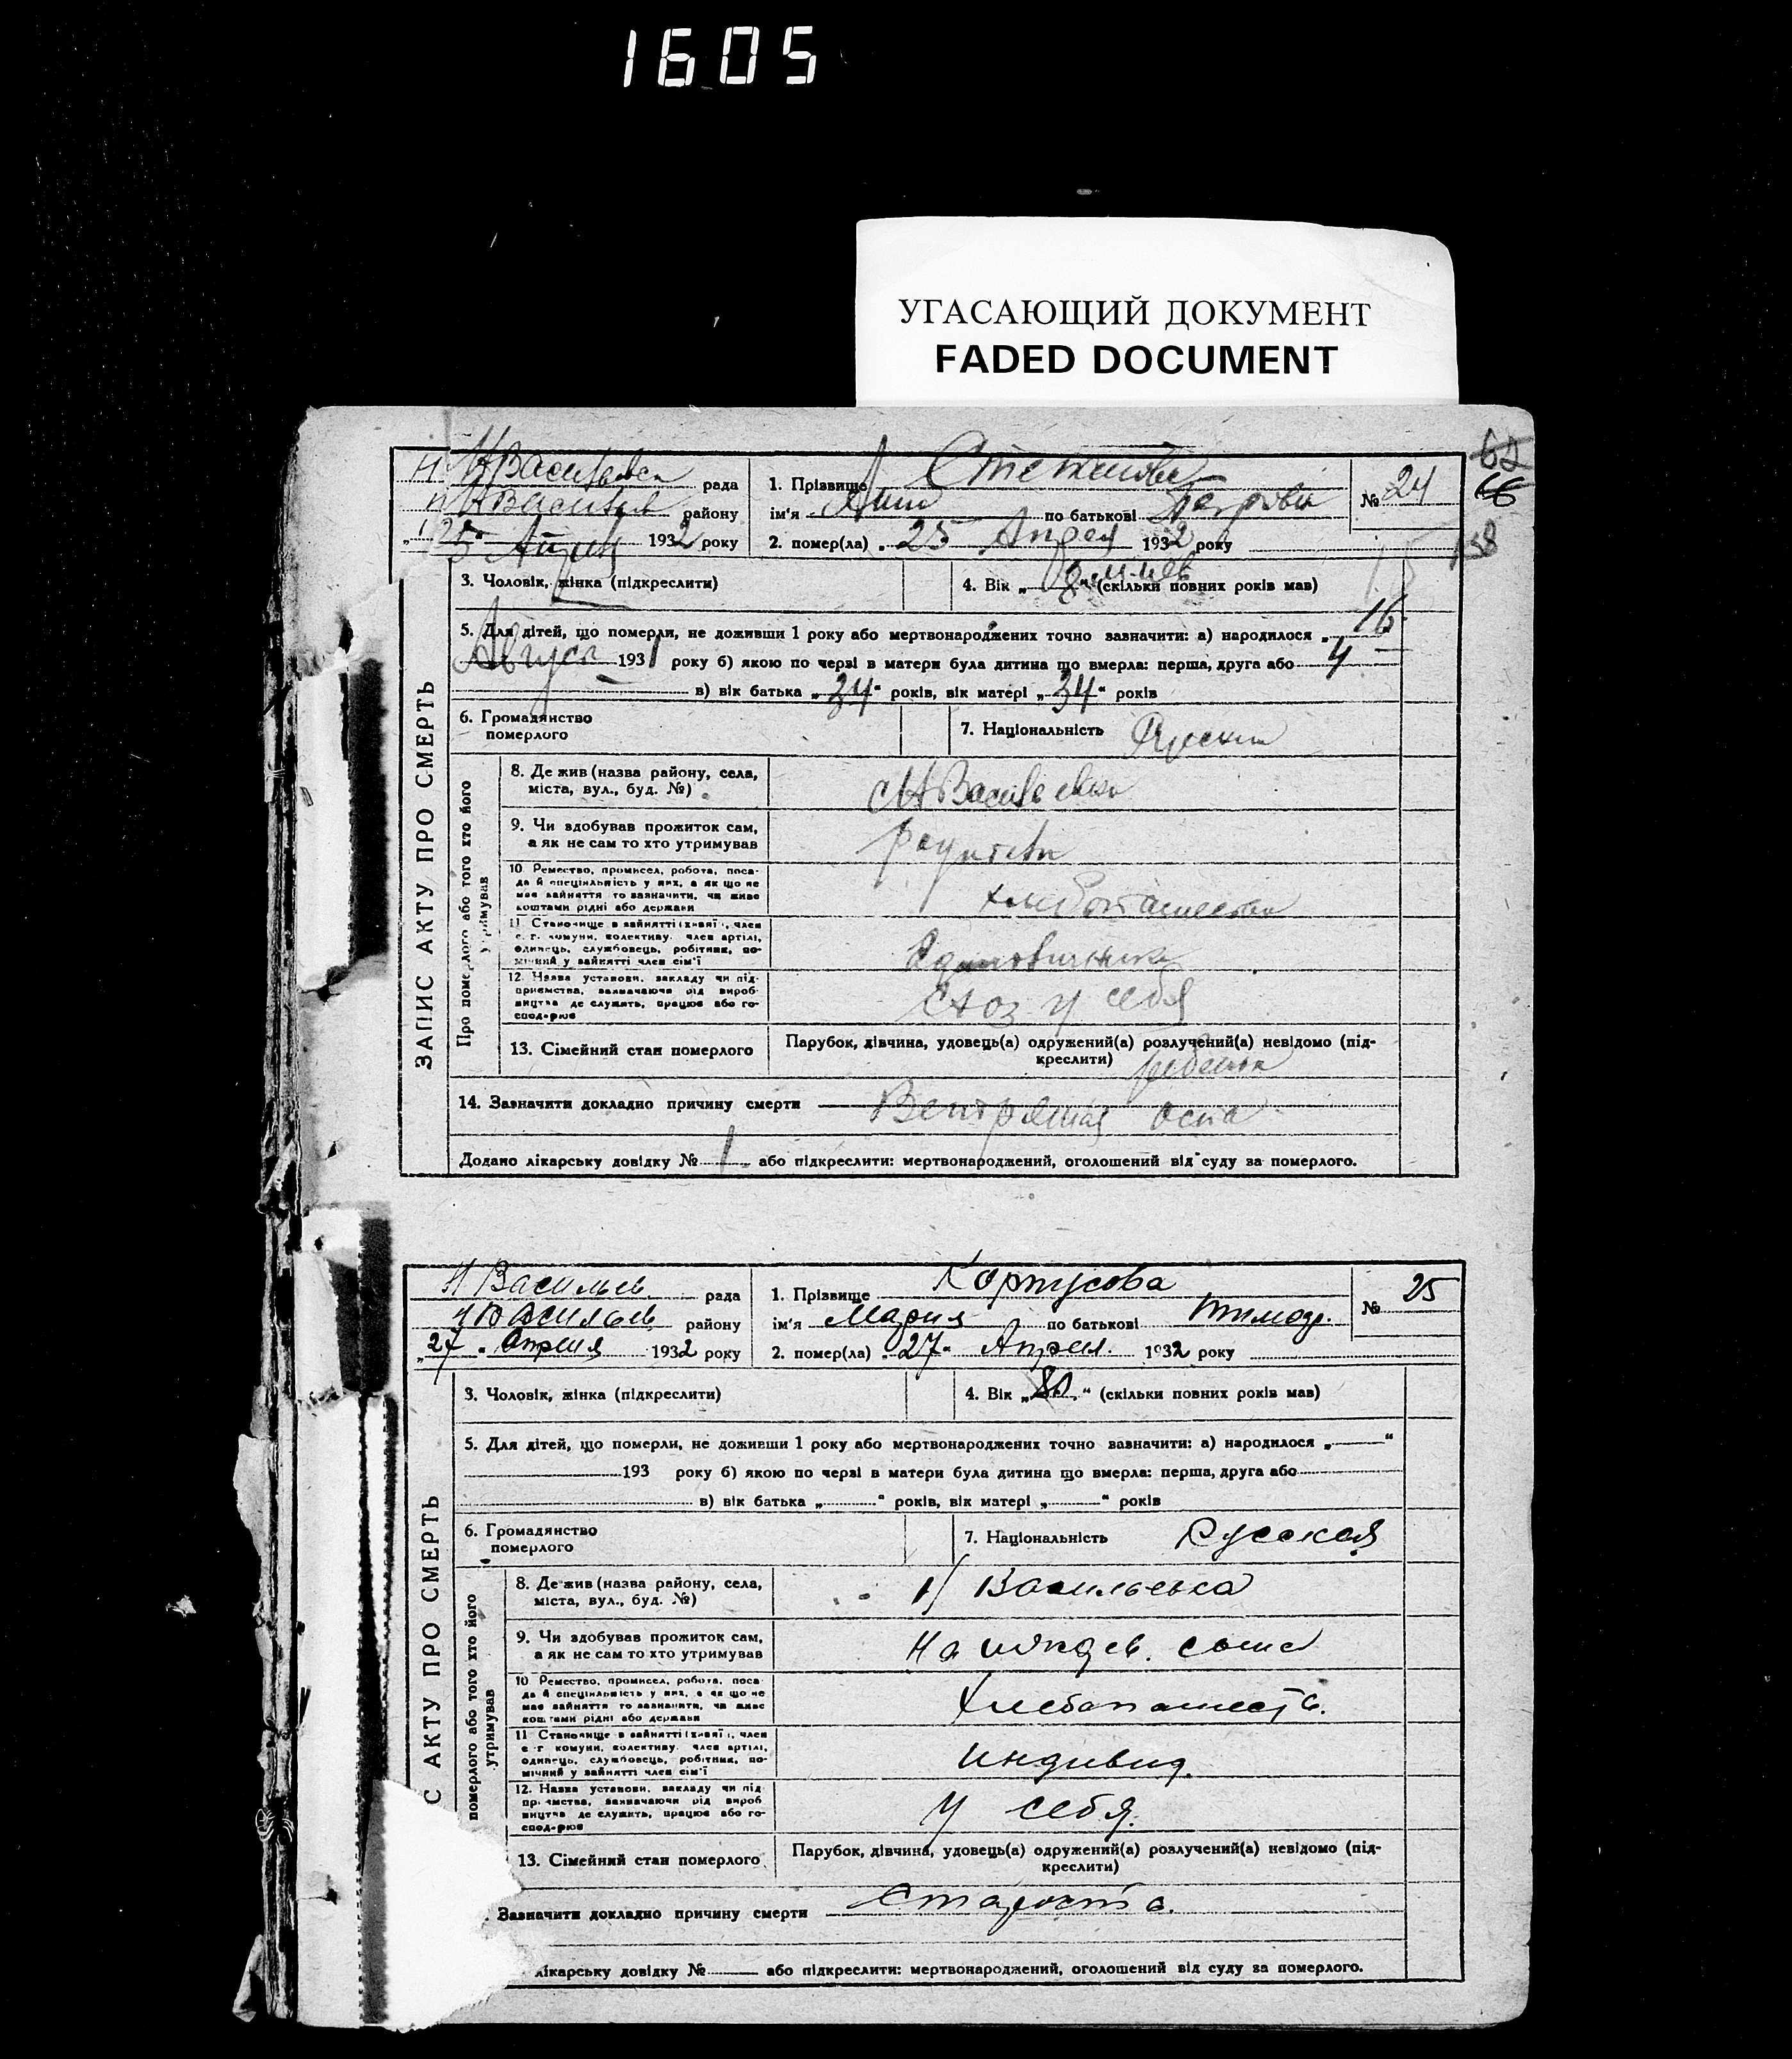 1605
УГАСАЮЩИЙ ДОКУМЕНТ
FADED DOCUMENT
62
66
58
ЗАПИС АКТУ ПРО СМЕРТЬ
рада
району
1932 року
1. Прізвище
ім'я Анна по батькові
2. помер(ла) „25 Апреля 1932 року
№ 24
3. Чоловік, жінка (підкреслити)
4. Вік „8“ (скільки повних років мав)
5. Для дітей, що померли, не доживши 1 року або мертвонароджених точно зазначити: а) народилося „16
Август 1931 року б) якою по черзі в матери була дитина що вмерла: перша, друга або 4
в) вік батька „34“ років, вік матері „34“ років
6. Громадянство
померлого
7. Національність
Про померлого або того хто його
утримував
8. Де жив (назва району, села,
міста, вул., буд. №)
9. Чи здобував прожиток сам,
а як не сам то хто утримував
10 Ремество, промисел, робота, поса-
да й спеціяльність у них, а як що не
має зайняття то зазначити, чи живе
коштами рідні або держави
11 Становище в зайнятті (хазяї, член
с.-г. комуни, колективу, член артілі,
одинець, службовець, робітник, по-
мічний у зайнятті член сім'ї
12. Назва установи, закладу чи під-
приємства, зазначаючи рід вироб-
ництва де служить, працює або го-
сподарює
у себя
13. Сімейний стан померлого
Парубок, дівчина, удовець(а) одружений(а) розлучений(а) невідомо (під-
креслити)
ребенок
14. Зазначити докладно причину смерти Ветряная оспа
Додано лікарську довідку № або підкреслити: мертвонароджений, оголошений від суду за померлого.
С АКТУ ПРО СМЕРТЬ
Н Васильев. рада
Н Васильев. району
„27 " Апреля 1932 року
1. Прізвище Корпусова
ім'я Мария по батькові Тимоф.
2. помер(ла) „27" Апрел. 1932 року
№ 25
3. Чоловік, жінка (підкреслити)
4. Вік „80“ (скільки повних років мав)
5. Для дітей, що померли, не доживши 1 року або мертвонароджених точно зазначити: а) народилося „ “
193 року б) якою по черзі в матери була дитина що вмерла: перша, друга або
в) вік батька „ “ років, вік матері „ “ років
6. Громадянство
померлого
7. Національність Русская
померлого або того хто його
утримував
8. Де жив (назва району, села,
міста, вул., буд. №)
Н Васильевка
9. Чи здобував прожиток сам,
а як не сам то хто утримував
На иждев. сына
10 Ремество, промисел, робота, поса-
да й спеціяльність у них, а як що не
має зайняття то зазначити, чи живе
коштами рідні або держави
Хлебопашеств.
11 Становище в зайнятті (хазяї, член
с.-г. комуни, колективу, член артілі,
одинець, службовець, робітник, по-
мічний у зайнятті член сім'ї
индивид.
12. Назва установи, закладу чи під-
приємства, зазначаючи рід вироб-
ництва де служить, працює або го-
сподарює
у себя.
13. Сімейний стан померлого
Парубок, дівчина, удовець(а) одружений(а) розлучений(а) невідомо (під-
креслити)
Зазначити докладно причину смерти Старость.
лікарську довідку № або підкреслити: мертвонароджений, оголошений від суду за померлого.